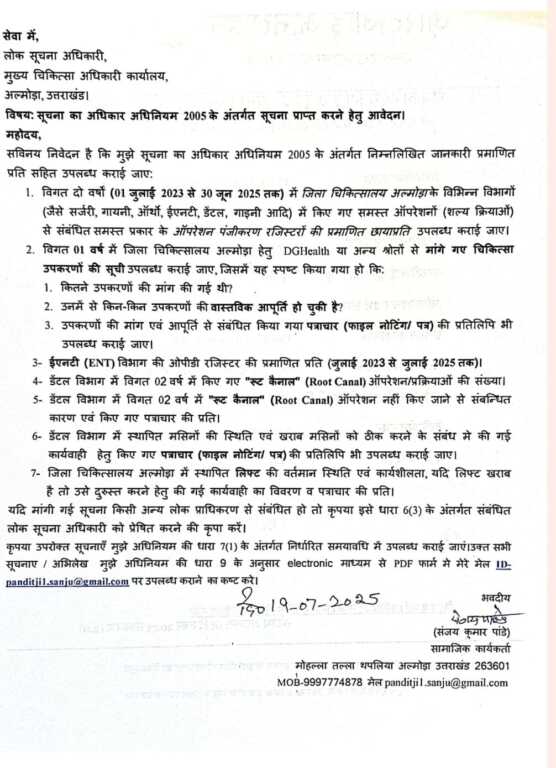 सेवा में,
लोक सूचना अधिकारी,
मुख्य चिकित्सा अधिकारी कार्यालय,
अल्मोड़ा, उत्तराखंड।
विषय: सूचना का अधिकार अधिनियम 2005 के अंतर्गत सूचना प्राप्त करने हेतु आवेदन।
महोदय,
सविनय निवेदन है कि मुझे सूचना का अधिकार अधिनियम 2005 के अंतर्गत निम्नलिखित जानकारी प्रमाणित
प्रति सहित उपलब्ध कराई जाए:
1. विगत दो वर्षों (01 जुलाई 2023 से 30 जून 2025 तक) में जिला चिकित्सालय अल्मोड़ाके विभिन्न विभागों
(जैसे सर्जरी, गायनी, ऑर्थो, ईएनटी, डेंटल, गाइनी आदि) में किए गए समस्त ऑपरेशनों (शल्य क्रियाओं)
से संबंधित समस्त प्रकार के ऑपरेशन पंजीकरण रजिस्टरों की प्रमाणित छायाप्रति उपलब्ध कराई जाए।
2. विगत 01 वर्ष में जिला चिकित्सालय अल्मोड़ा हेतु DGHealth या अन्य श्रोतों से मांगे गए चिकित्सा
उपकरणों की सूची उपलब्ध कराई जाए, जिसमें यह स्पष्ट किया गया हो कि:
1. कितने उपकरणों की मांग की गई थी?
2. उनमें से किन-किन उपकरणों की वास्तविक आपूर्ति हो चुकी है?
3. उपकरणों की मांग एवं आपूर्ति से संबंधित किया गया पत्राचार (फाइल नोटिंग/ पत्र) की प्रतिलिपि भी
उपलब्ध कराई जाए।
3- ईएनटी (ENT) विभाग की ओपीडी रजिस्टर की प्रमाणित प्रति (जुलाई 2023 से जुलाई 2025 तक)।
4- डेंटल विभाग में विगत 02 वर्ष में किए गए "रूट कैनाल" (Root Canal) ऑपरेशन/प्रक्रियाओं की संख्या।
5- डेंटल विभाग में विगत 02 वर्ष में "रूट कैनाल" (Root Canal) ऑपरेशन नहीं किए जाने से संबन्धित
कारण एवं किए गए पत्राचार की प्रति।
6- डेंटल विभाग में स्थापित मसिनों की स्थिति एवं खराब मसिनों को ठीक करने के संबंध मे की गई
कार्यवाही हेतु किए गए पत्राचार (फाइल नोटिंग/ पत्र) की प्रतिलिपि भी उपलब्ध कराई जाए।
7- जिला चिकित्सालय अल्मोड़ा में स्थापित लिफ्ट की वर्तमान स्थिति एवं कार्यशीलता, यदि लिफ्ट खराब
है तो उसे दुरुस्त करने हेतु की गई कार्यवाही का विवरण व पत्राचार की प्रति।
यदि मांगी गई सूचना किसी अन्य लोक प्राधिकरण से संबंधित हो तो कृपया इसे धारा 6(3) के अंतर्गत संबंधित
लोक सूचना अधिकारी को प्रेषित करने की कृपा करें।
कृपया उपरोक्त सूचनाएँ मुझे अधिनियम की धारा 7(1) के अंतर्गत निर्धारित समयावधि में उपलब्ध कराई जाएं।उक्त सभी
सूचनाए / अभिलेख मुझे अधिनियम की धारा 9 के अनुसार electronic माध्यम से PDF फार्म मे मेरे मेल ID-
panditji1.sanju@gmail.com पर उपलब्ध कराने का कष्ट करे।
19-07-2025
भवदीय
(संजय कुमार पांडे)
सामाजिक कार्यकर्ता
मोहल्ला तल्ला थपलिया अल्मोड़ा उत्तराखंड 263601
MOB-9997774878 मेल panditji1.sanju@gmail.com